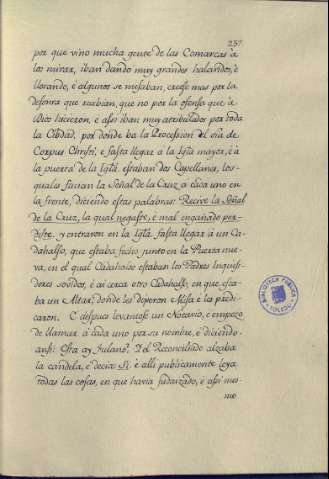 237
por que vino mucha gente de las Comarcas à
los mirar, iban dando muy grandes halaridos, è
llorando, è algunos se mesaban, crèese mas por la
desonra que recibian, que no por la ofensa que à
Dios hicieron, è assi iban muy atribulados por toda
la Ciudad, por donde ba la Procession el dia de
Corpus Christi, è fasta llegar à la Iglã mayor, è à
la puerta de la Iglã estaban dos Capellanes, los
quales facian la Señal de la Cruz à cada uno en
la frente, diciendo estas palabras: Recive la Señal
de la Cruz, la qual negaste, è mal engañado per-
diste. y entraron en la Iglã, fasta llegar à un Ca-
dahalso, que estaba fecho junto en la Puerta nue-
va, en el qual Cadahalso estaban los Padres Inquisi-
dores sovidos, è ài cerca otro Cadahalso, en que esta-
ba un Altar, donde les dixeron Missa è les predi-
caron. E despues levantose un Notario, è empezo
de llamar à cada uno por su nombre, è diciendo
ansi: Esta ay Fulano? I el Reconciliado alzaba
la candela, è decia: Si. è alli publicamente leya
todas las cosas, en que havia judaizado, è assi mes-
mo
BIBLIOTECA PUBLICA
TOLEDO